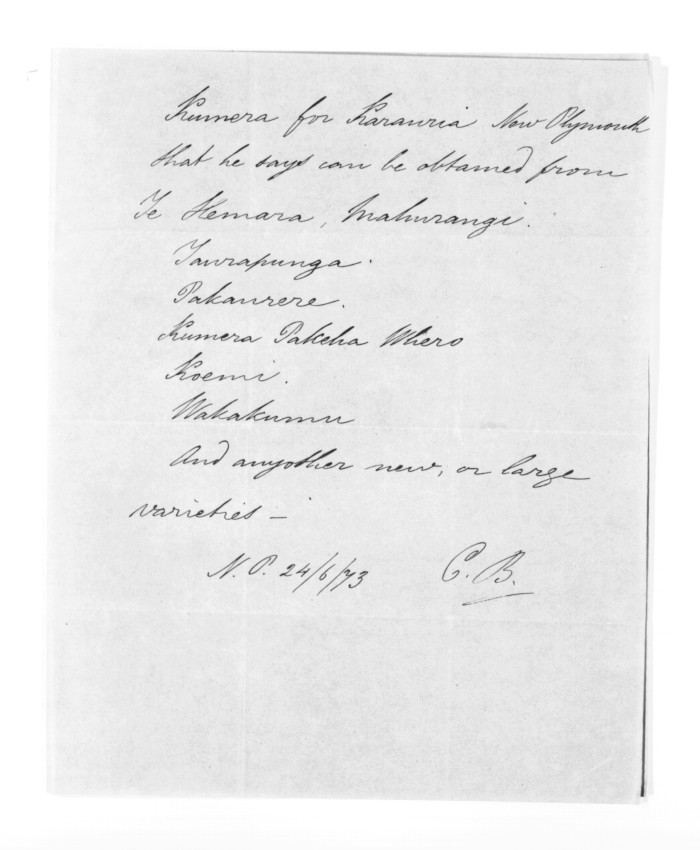 Kumera for Karauria New Plymouth
that he says can be obtained from
Te Hemara, Mahurangi.
Taurapunga.
Pakaurere.
Kumera Pakeha Whero
Koemi.
Wakakumu
And anyother new, or large
varieties —
N.P. 24/6/73 C.B.